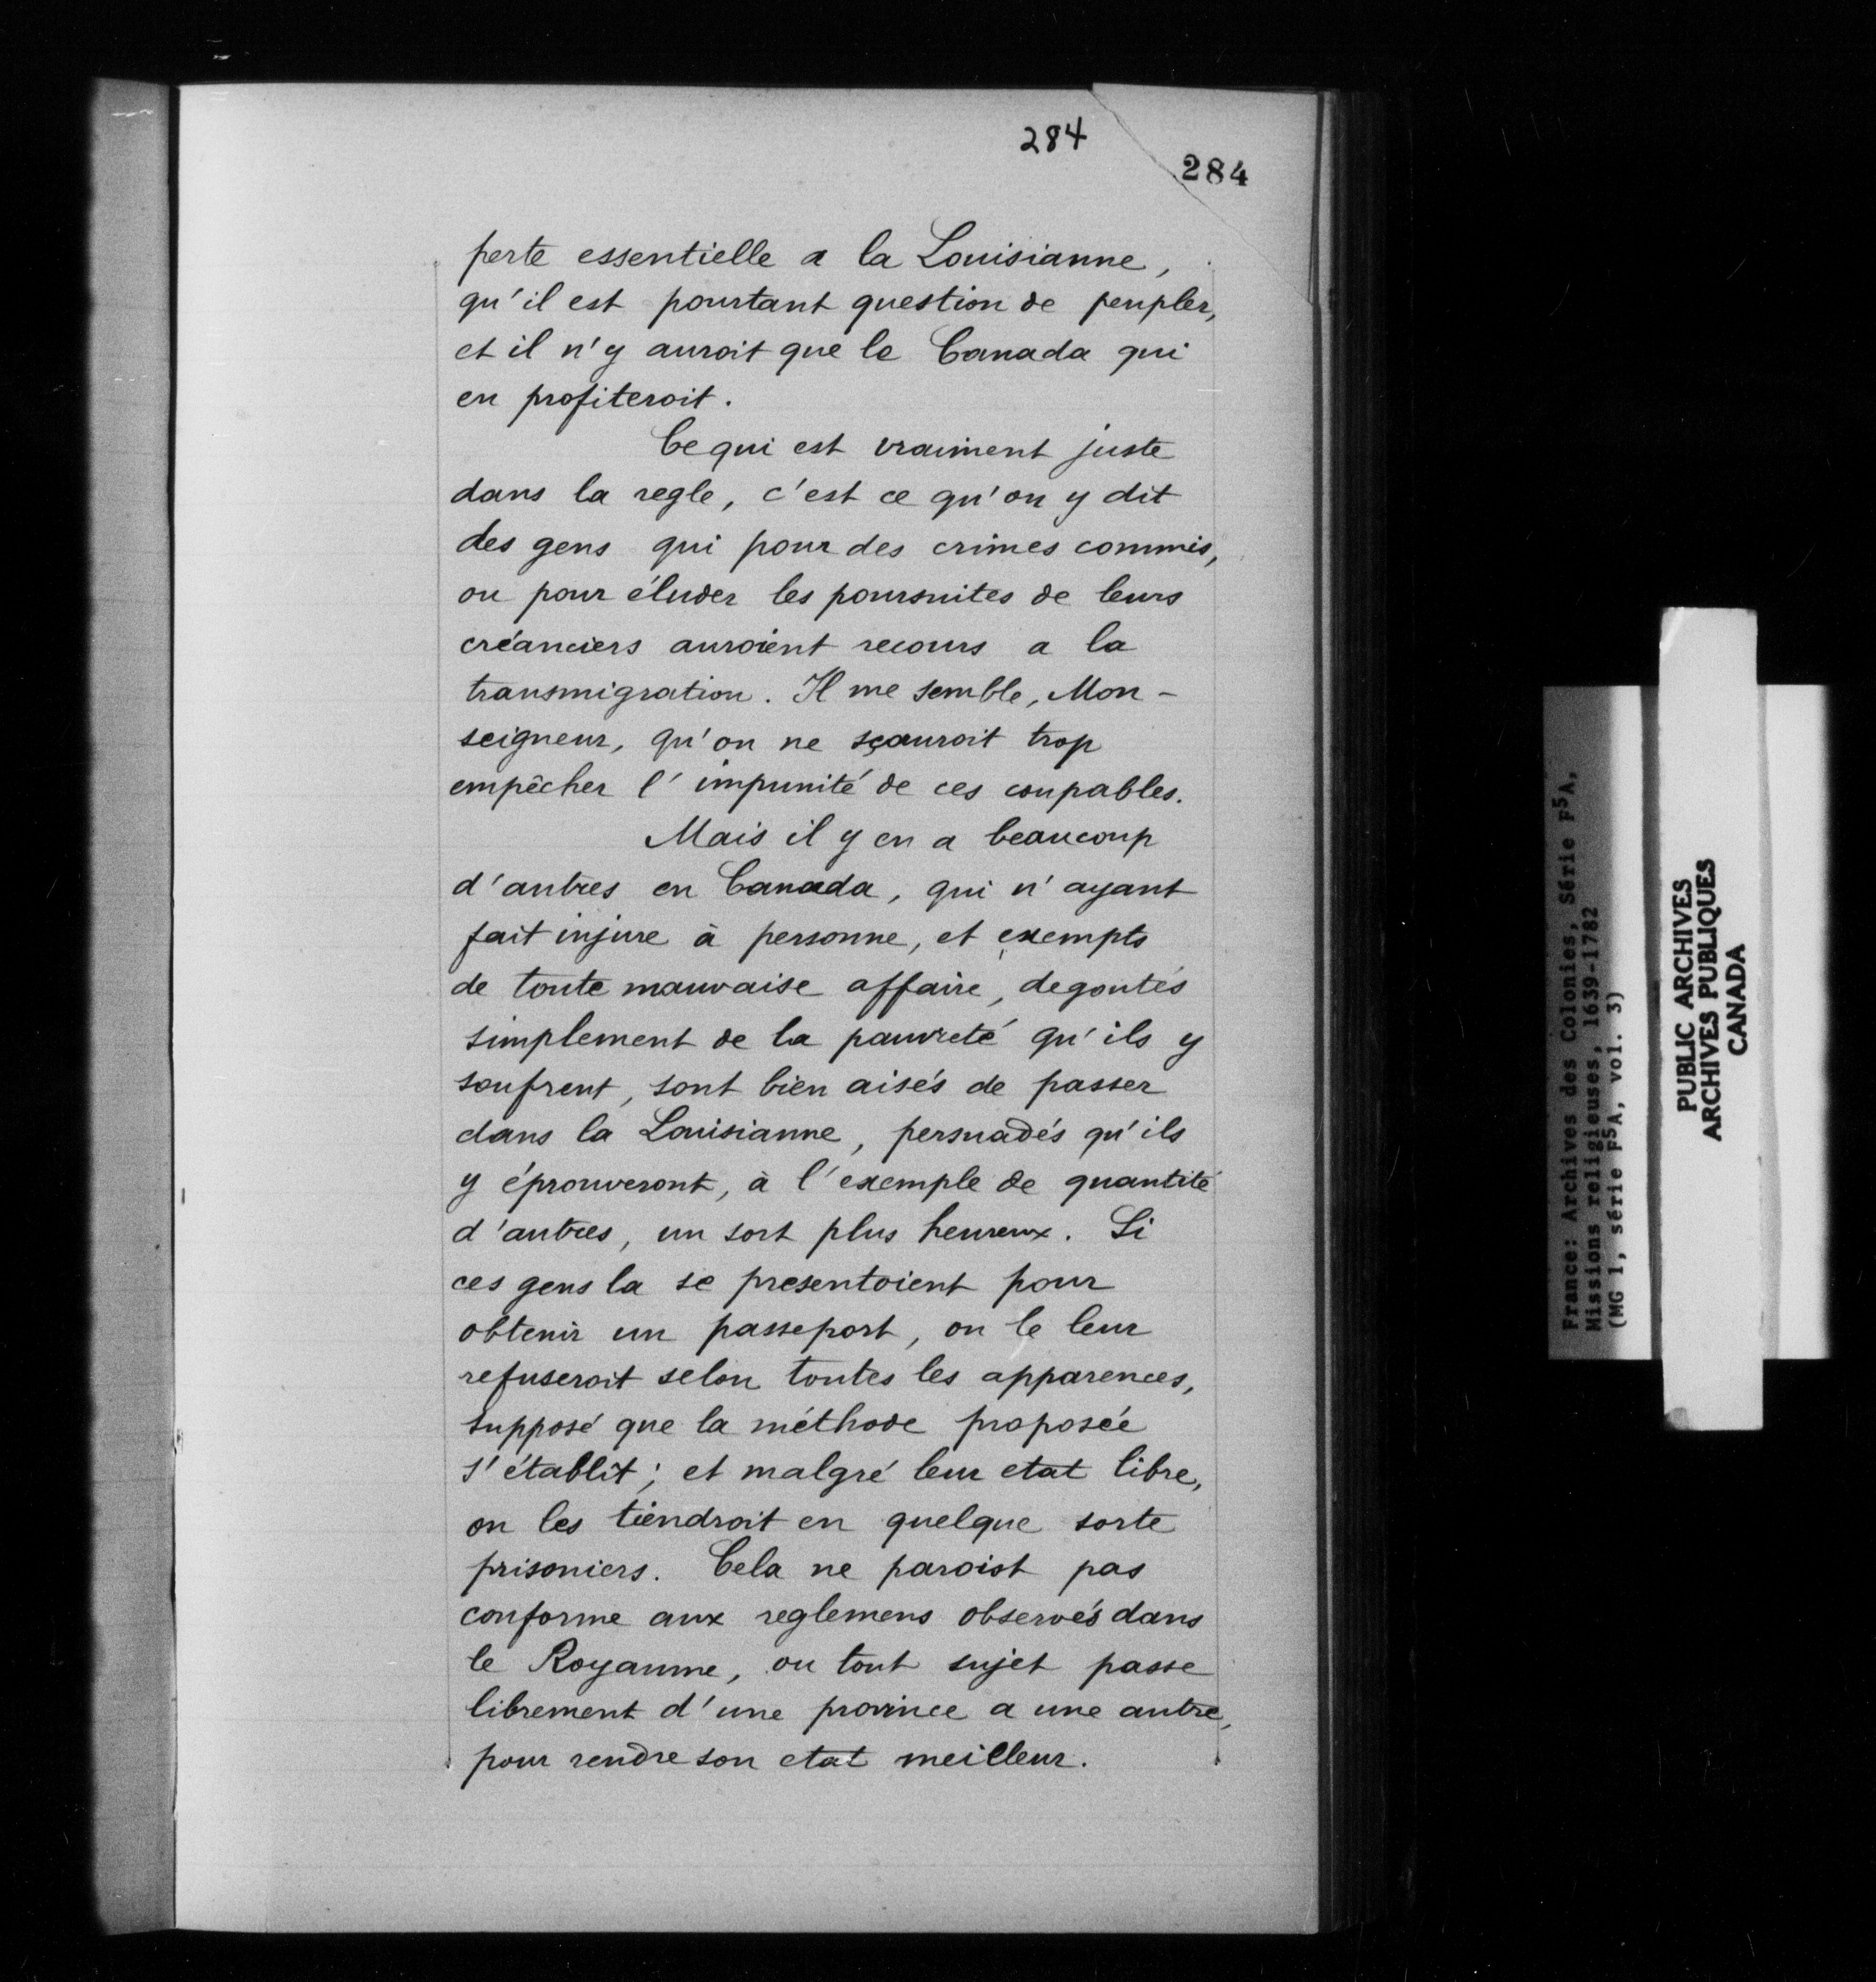 284
284
perte essentielle a la Louisianne,
qu'il est pourtant question de peupler,
et il n'y auroit que le Canada qui
en profiteroit.
Ce qui est vraiment juste
dans la regle, c'est ce qu'on y dit
des gens qui pour des crimes commis,
ou pour éluder les poursuites de leurs
créanciers auroient recours a la
transmigration. Il me semble, Mon-
seigneur, qu'on ne sçauroit trop
empêcher l'impunité de ces coupables.
Mais il y en a beaucoup
d'autres en Canada, qui n'ayant
fait injure à personne, et exempts
de toute mauvaise affaire, degoutés
simplement de la pauvreté qu'ils y
soufrent, sont bien aisés de passer
dans la Louisianne, persuadés qu'ils
y éprouveront, à l'exemple de quantité
d'autres, un sort plus heureux. Si
ces gens la se presentoient pour
obtenir un passeport, on le leur
refuseroit selon toutes les apparences,
supposé que la méthode proposée
s'établit; et malgré leur etat libre,
on les tiendroit en quelque sorte
prisoniers. Cela ne paroist pas
conforme aux reglemens observés dans
le Royaume, ou tout sujet passe
librement d'une province a une autre,
pour rendre son etat meilleur.
France: Archives des Colonies, Série F5A,
Missions religieuses, 1639-1782
(MG 1, série F5A, vol. 3)
PUBLIC ARCHIVES
ARCHIVES PUBLIQUES
CANADA